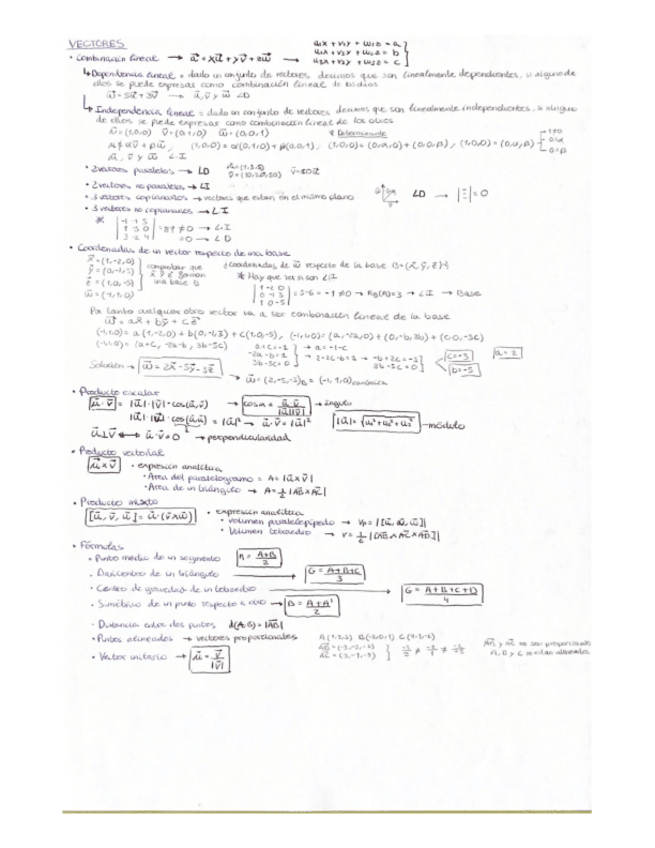 VECTORES
• Combinación lineal → a = xu + yv + zw → u₁x + v₁y + w₁z = a
u₂x + v₂y + w₂z = b
u₃x + v₃y + w₃z = c
↳ Dependencia lineal = dado un conjunto de vectores decimos que son linealmente dependientes, si alguno de
ellos se puede expresar como combinación lineal de
↳ Independencia lineal = dado un conjunto de vectores decimos que son linealmente independientes, si
de ellos se puede expresar como combinación lineal de los otros
u = (1,0,0) v = (0,1,0) w = (0,0,1)
u ≠ αv + βw, (1,0,0) = α(0,1,0) + β(0,0,1), (1,0,0) = (0,α,0) + (0,0,β), (1,0,0) = (0,α,β)
u, v y w L.I
• 2 vectores paralelos → LD
• 2 vectores no paralelos → LI
• 3 vectores coplanarios → vectores que están en el mismo plano LD → = 0
• 3 vectores no coplanarios → L.I
≠ 0 → L.I
= 0 → L D
• Coordenadas de un vector respecto de una base
x = (1,-2,0)
y = (0,-1,3)
z = (1,0,-5)
w = (-1,1,0)
comprobar que
x y z forman
una base
¿Coordenadas de w respecto de la base B = {x, y, z}?
* Hay que ver si son L.I
= 5 - 6 = -1 ≠ 0 → Rg(A)=3 → L.I → Base
Por tanto cualquier otro vector va a ser combinación lineal de la base
w = ax + by + cz
(-1,1,0) = a(1,-2,0) + b(0,-1,3) + c(1,0,-5), (-1,1,0) = (a,-2a,0) + (0,-b,3b) + (c,0,-5c)
(-1,1,0) = (a+c, -2a-b, 3b-5c) a+c=-1 → a=-1-c
-2a-b=1 → 2+2c-b=1 → -b+2c=-1
3b-5c=0 3b-5c=0
c=-3
b=-5
a=2
Solución → w = 2x - 5y - 3z
→ w = (2,-5,-3)B = (-1,1,0) canónica
• Producto escalar
u · v = |u| · |v| · cos(u,v) → cos α = u·v / |u||v| → ángulo
|u| · |u| · cos(u,u) = |u|² → u·v = |u|² |u| = √u₁² + u₂² + u₃² → módulo
u⊥v ⟷ u·v = 0 → perpendicularidad
• Producto vectorial
u × v • expresión analítica
• Área del paralelogramo = A = |u × v|
• Área de un triángulo → A = ½ |AB × AC|
• Producto mixto
[u, v, w] = u·(v×w) • expresión analítica
• Volumen paralelepípedo → Vp = |[u, v, w]|
• Volumen tetraedro → V = 1/6 |[AB × AC × AD]|
• Fórmulas
• Punto medio de un segmento M = A+B / 2
• Baricentro de un triángulo → G = A+B+C / 3
• Centro de gravedad de un tetraedro → G = A+B+C+D / 4
• Simétrico de un punto respecto a otro → B = A+A' / 2
• Distancia entre dos puntos d(A,B) = |AB|
• Puntos alineados → vectores proporcionales
AB y AC no son proporcionales
A, B y C no están alineados
• Vector unitario → u = v / |v|